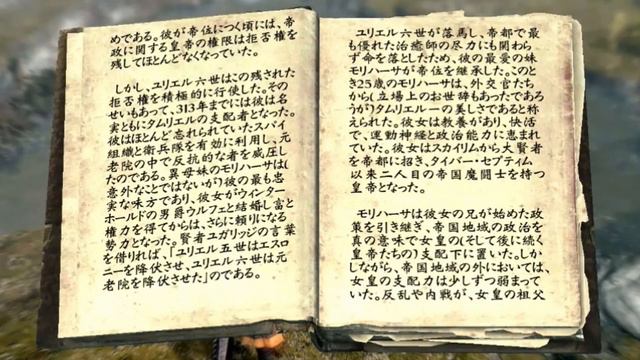 めである。彼が帝位につく頃には、帝
政に関する皇帝の権限は拒否権を
残してほとんどなくなっていた。
しかし、ユリエル六世はこの残された
拒否権を積極的に行使した。その
せいもあって、313年までには彼は名
実ともにタムリエルの支配者となった。
彼はほとんど忘れられていたスパイ
組織と衛兵隊を有効に利用し、元
老院の中で反抗的な者を威圧し
たのである。異母妹のモリハーサは(
意外なことではないが)彼の最も忠
実な味方であり、彼女がウィンター
ホールドの男爵ウルフェと結婚し富と
権力を得てからは、さらに頼りになる
勢力となった。賢者ユガリッジの言葉
を借りれば、「ユリエル五世はエスロ
ニーを降伏させ、ユリエル六世は元
老院を降伏させた」のである。
ユリエル六世が落馬し、帝都で最
も優れた治癒師の尽力にも関わら
ず命を落としたため、彼の最愛の妹
モリハーサが帝位を継承した。このと
き25歳のモリハーサは、外交官たち
から(立場上のお世辞もあったであろ
うが)タムリエル一の美しさであると称
えられた。彼女は教養があり、快活
で、運動神経と政治能力に恵まれ
ていた。彼女はスカイリムから大賢者
を帝都に招き、タイバー・セプティム
以来二人目の帝国魔闘士を持つ
皇帝となった。
モリハーサは彼女の兄が始めた政
策を引き継ぎ、帝国地域の政治を
真の意味で女皇の(そして後に続く
皇帝たちの)支配下に置いた。しか
しながら、帝国地域の外においては、
女皇の支配力は少しずつ弱まって
いた。反乱や内戦が、女皇の祖父